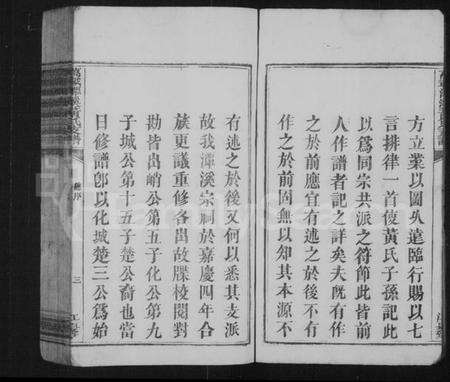 方立業以圖夙遠臨行賜以七
言排律一首俾黃氏子孫記此
以爲同宗共派之符節此皆前
人作譜者記之詳矣夫旣有作
之於前應宜有述之於後不有
作之於前固無以知其本源不
有述之於後又何以悉其支派
故我潭溪宗祠於嘉慶四年合
族更議重修各出故牒校閱對
勘皆出峭公第五子化公第九
子城公第十五子楚公裔也當
日修譜卽以化城楚三公爲始
序
三